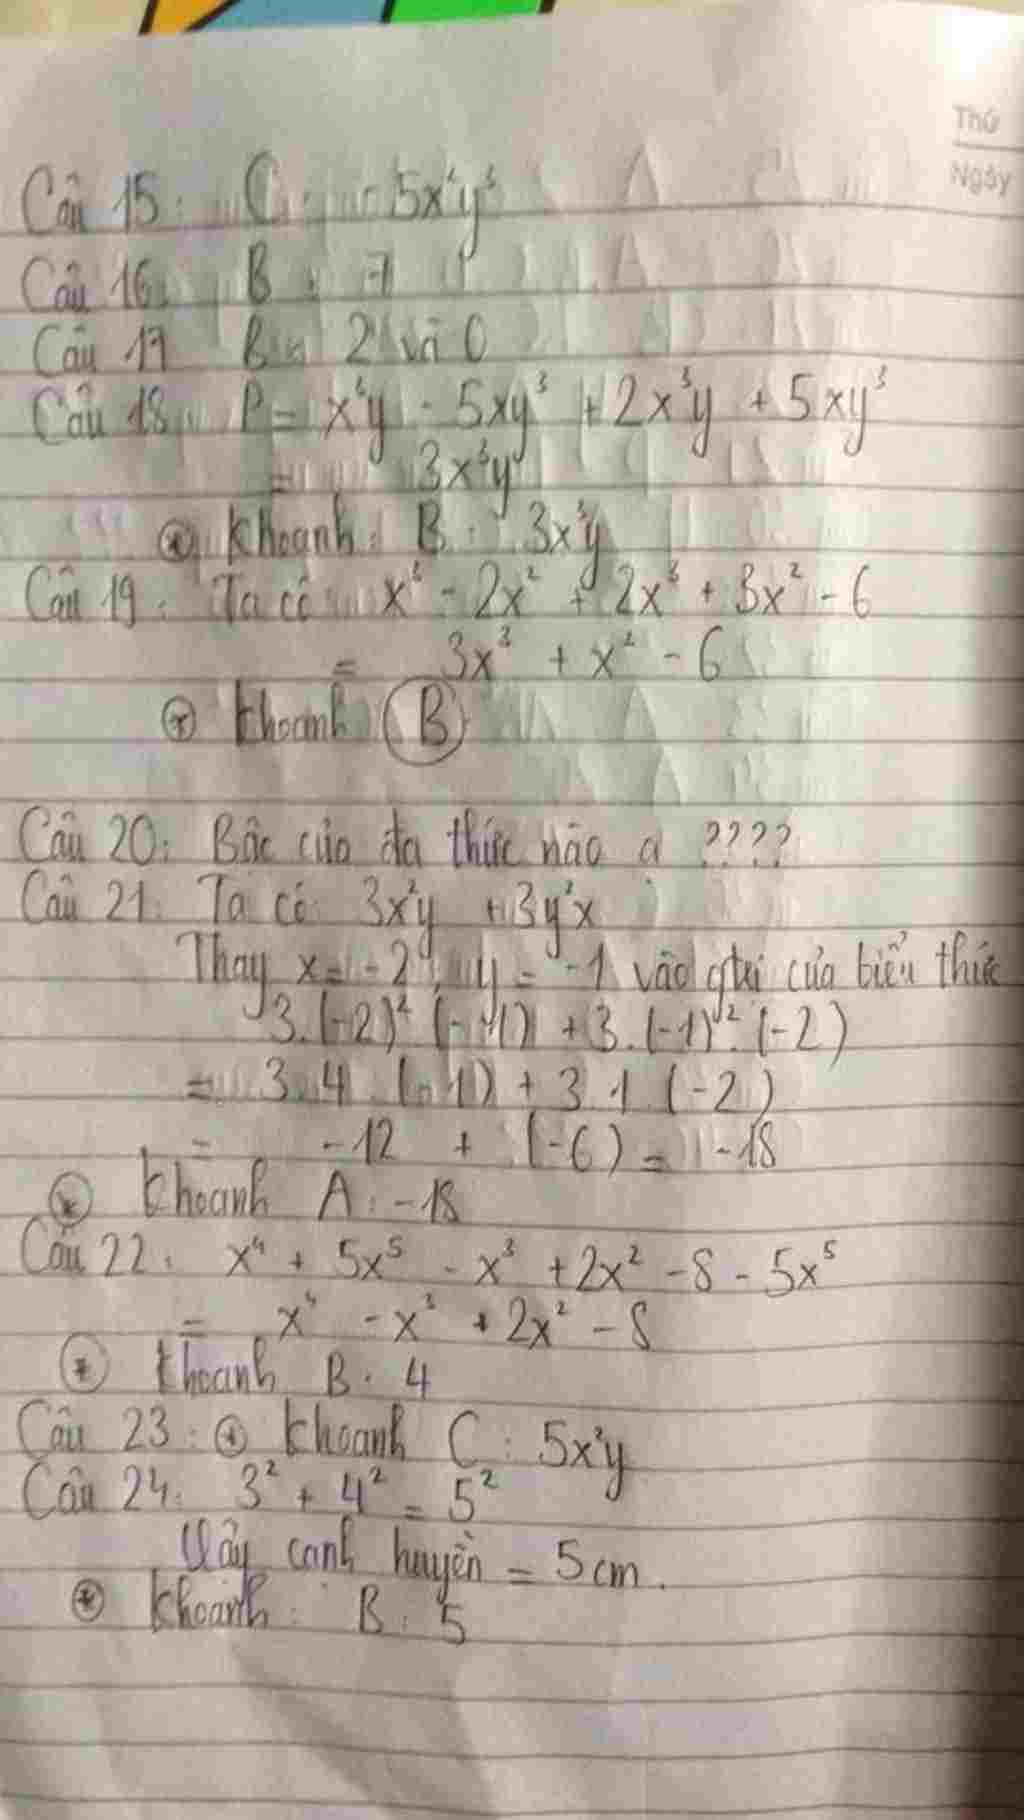 Thứ
Ngày
Câu 15: C: 5x²y³
Câu 16: B: -7
Câu 17 B: 2 và 0
Câu 18: P = x³y - 5xy³ + 2x³y + 5xy³
= 3x³y
* Khoanh: B: 3x³y
Câu 19: Ta có x³ - 2x² + 2x³ + 3x² - 6
= 3x³ + x² - 6
* khoanh B
Câu 20: Bậc của đa thức nào ạ ????
Câu 21: Ta có 3x²y + 3y²x
Thay x = -2; y = -1 vào gtri của biểu thức
3.(-2)² (-1) + 3.(-1)².(-2)
= 3.4.(-1) + 3.1.(-2)
= -12 + (-6) = -18
* khoanh A: -18
Câu 22: x⁴ + 5x⁵ - x³ + 2x² - 8 - 5x⁵
= x⁴ - x³ + 2x² - 8
* khoanh B. 4
Câu 23: * khoanh C: 5x²y
Câu 24: 3² + 4² = 5²
Vậy cạnh huyền = 5cm.
* khoanh: B: 5